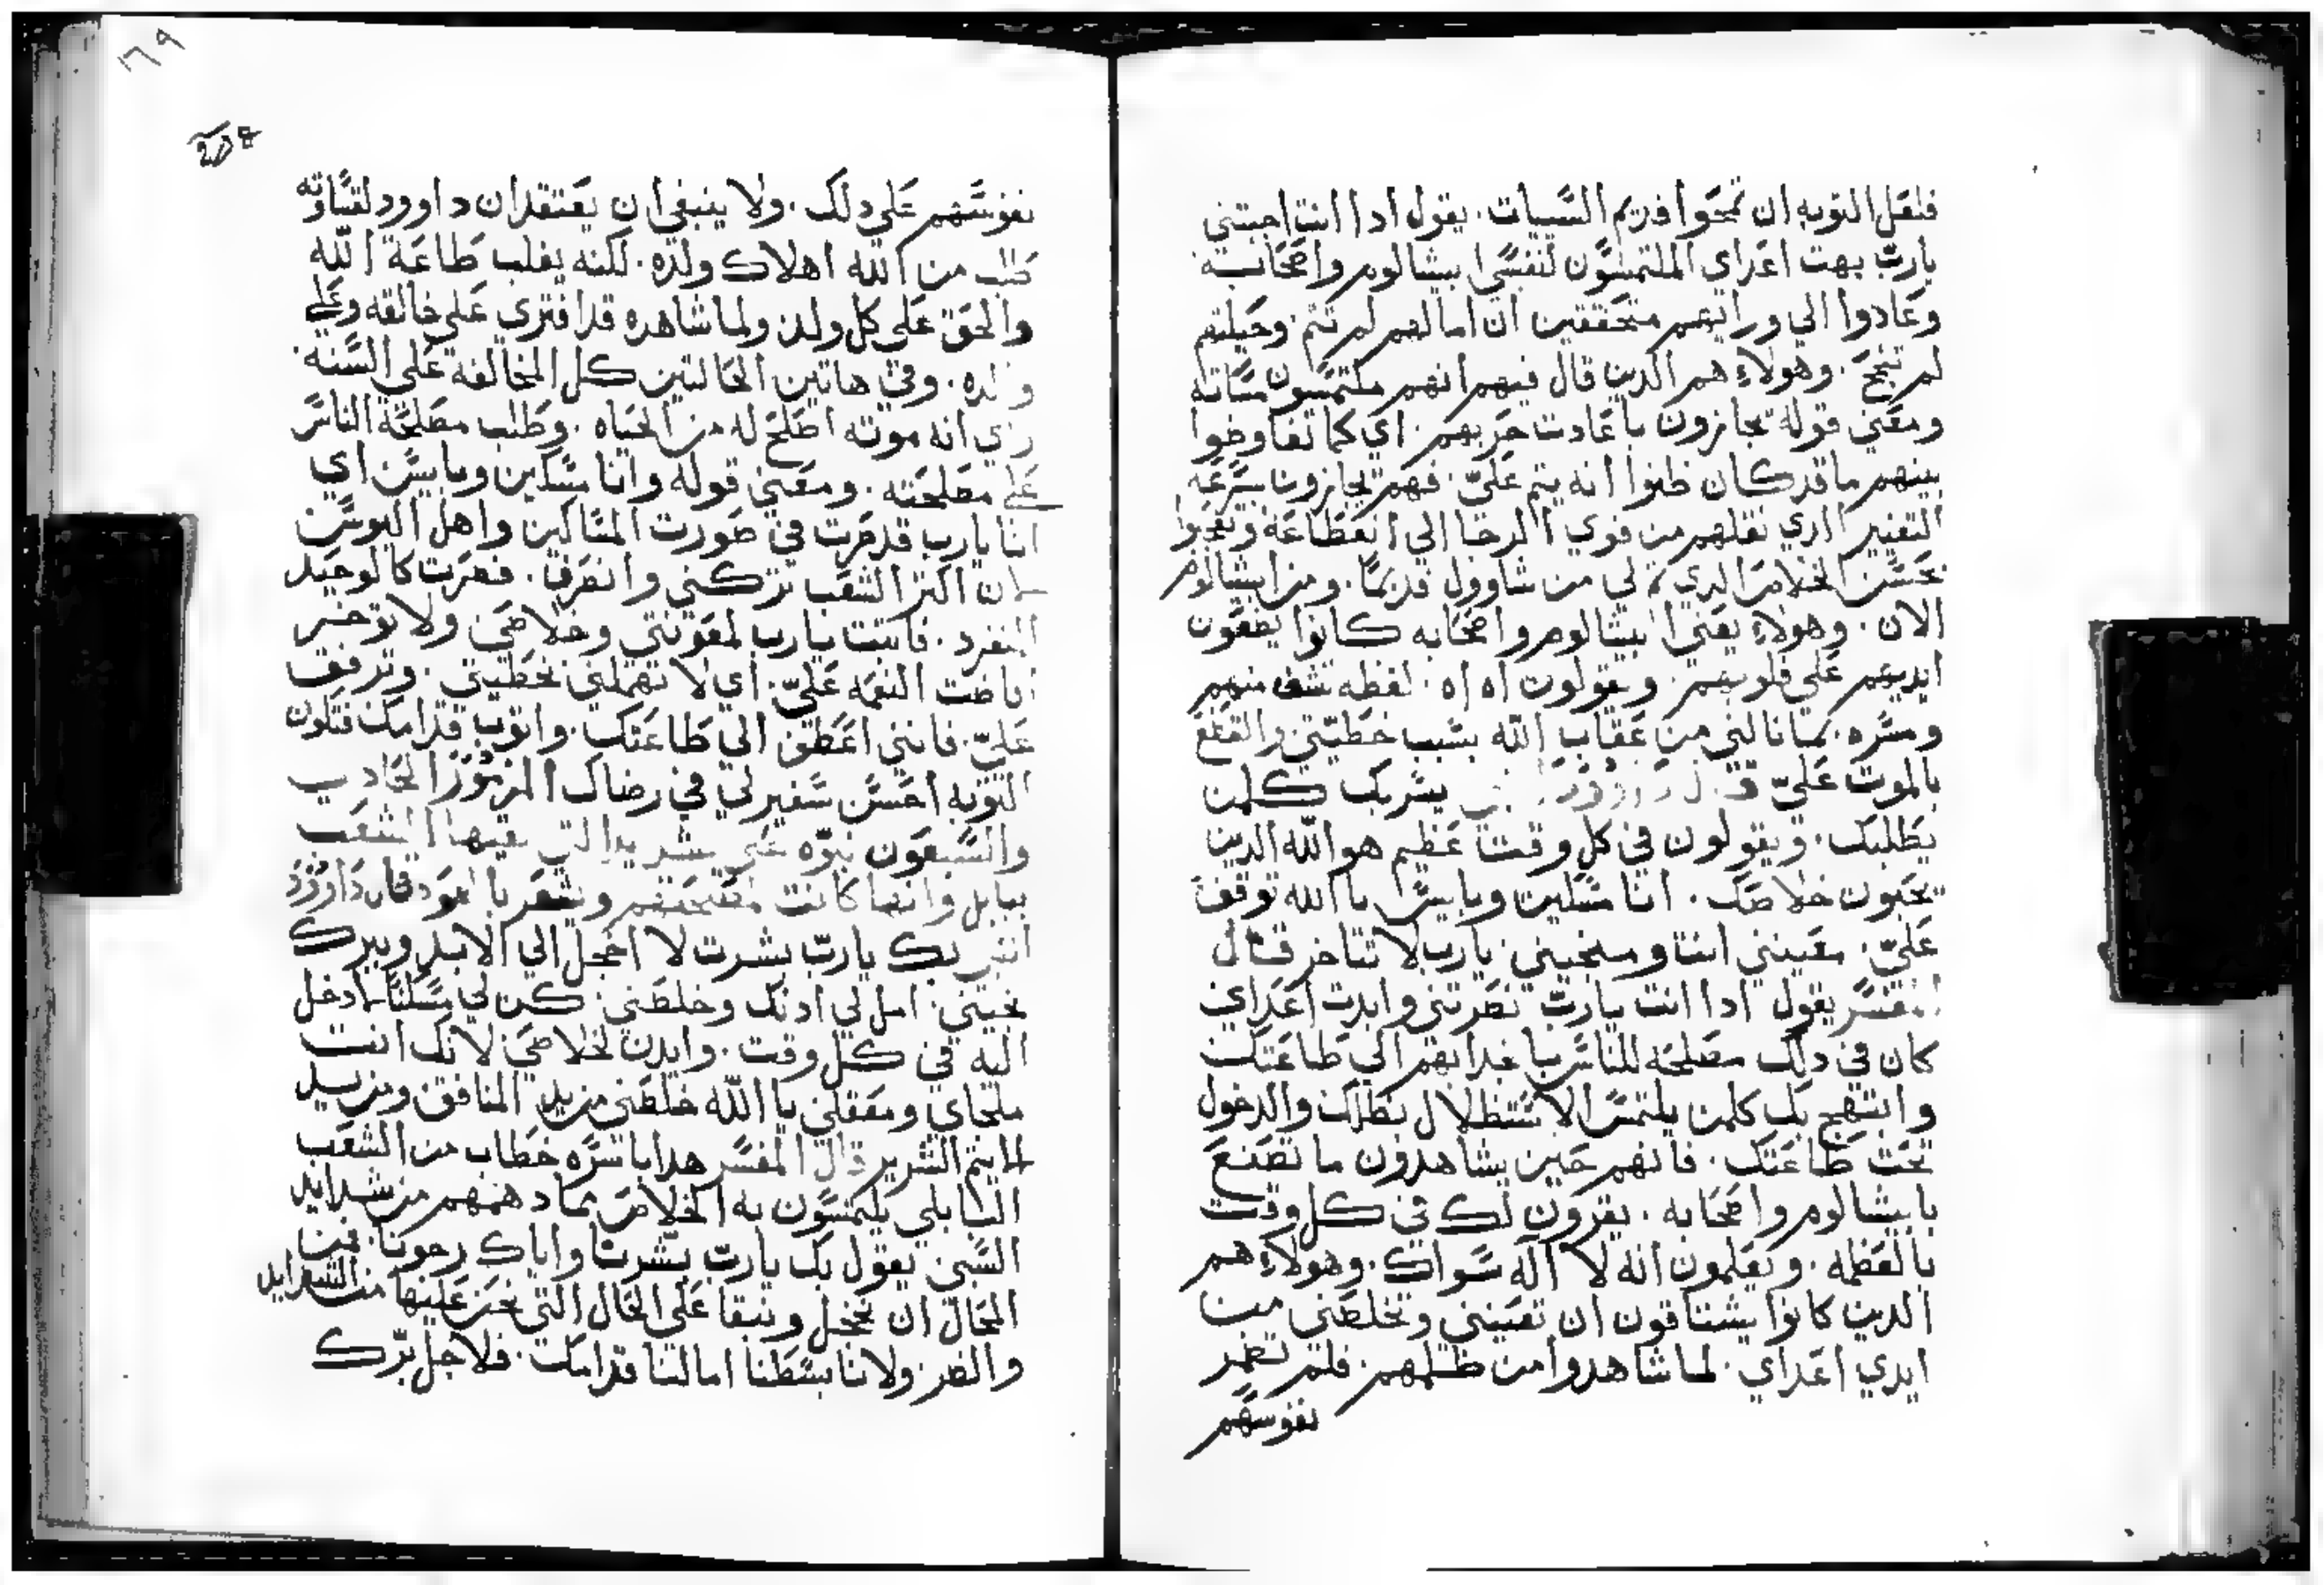 فلعل التوبه ان تمحوا قديم السيات. يقول ادا انت اجبتني
يارب بهت اعداي الملتمسون لنفسي ابيشالوم واصحابه
وعادوا الي ورايهم متحققين ان امالهم لم تتم. وحيلتهم
لم تنجح. وهولاء هم الدين قال فيهم انهم ملتمسون مساته
ومعني قوله يجازون باعادت حزيهم. اي كما تفاوضوا
بينهم ما قد كان ظنوا انه يتم عليّ. فهم يجازون بسرعه
التغيير ادي نقلهم من قوي الرخا الي انقطاعه وتعجبوا
بحسن الخلاص الدي لي من شاوول قديمًا. ومن ابيشالوم
الان. وهولاء يعني ابيشالوم واصحابه كانوا يضعون
ايديهم علي قلوبهم. ويقولون اه اه. لفظه تشف منهم
ومسره. بما نالني من عقاب الله بسبب خطيتي والقطع
بالموت عليّ قال داوود يسر بك كلمن
يطلبك. ويقولون في كل وقت عظيم هو الله الدين
يحبون خلاصك. انا مسكين وبايس يا الله توقف
عليّ. معيني انت ومنجيني يارب لا تتاخر قال
المفسر يقول ادا انت يارب نصرتني وابدت اعداي
كان في دلك مصلحه للناس بانجدابهم الي طاعتك
وابتهج بك كلمن يلتمس الاستظلال بظلك والدخول
تحت طاعتك. فانهم حين يشاهدون ما تصنع
بابيشالوم واصحابه. يقرون لك في كل وقت
بالعظمه. ويعلمون انه لا اله سواك. وهولاء هم
الدين كانوا يشتاقون ان تعينني وتخلصني من
ايدي اعداي. لما شاهدوا من ظلمهم. فلم تصبر
نفوسهم
١٦٩
نفوسهم علي دلك. ولا ينبغي ان يعتقد ان داوود لقساوته
طلب من الله اهلاك ولده. لكنه يغلب طاعة الله
والحق علي كل ولد. ولما شاهده قد افتري علي خالقه وعلي
ولده. وفي هاتين الحالتين كل المخالفه علي السنه
راي انه موته اصلح له من الحياه. وطلب مصلحة الناس
علي مصلحته. ومعني قوله وانا مسكين وبايس اي
انا يارب قد صرت في صورت المساكين واهل البوس
لان اكتر الشعب تركني وانصرف. فصرت كالوحيد
المنفرد. فاتبت يارب لمعونتي وخلاصي ولا توخر
افاضت النعمه عليّ. اي لا تهملني بخطيتي. وترفق
عليّ. فانني اعطف الي طاعتك. واتوب قدامك فتكون
التوبه احسن سفير لي في رضاك المزمور الحادي
والسبعون نبوه علي الشعب
ببابل وانها كانت وشعر بالعود قال داوود
النبي بك يارب بشرت لا اخجل الي الابد وببرك
نجيني. امل لي ادنك وخلصني. كن لي مسكنًا ادخل
اليه في كل وقت. وايدن لخلاصي لانك انت
ملجاي ومعقلي يا الله خلصني من يد المنافق ومن يد
الاتيم الشرير قال المفسر هدا باسره خطاب من الشعب
البابلي يلتمسون به الخلاص مما دهمهم من شدايد
السبي يقول بك يارب بشرنا واياك رجونا. فمن
المحال ان نخجل ونبقا علي الحال التي نحن عليها من الشدايد
والضر. ولاننا بسطنا امالنا قدامك. فلاجل برك